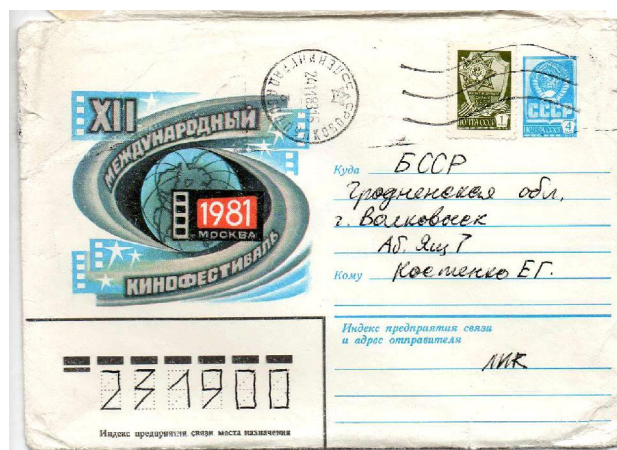 XII
МЕЖДУНАРОДНЫЙ
1981
МОСКВА
КИНОФЕСТИВАЛЬ
ПОЧТА СССР 1
СССР
4
Куда БССР
Гродненская обл.
г. Волковыск
Аб. Ящ 7
Кому Костенко ЕГ.
Индекс предприятия связи
и адрес отправителя
231900
Индекс предприятия связи места назначения